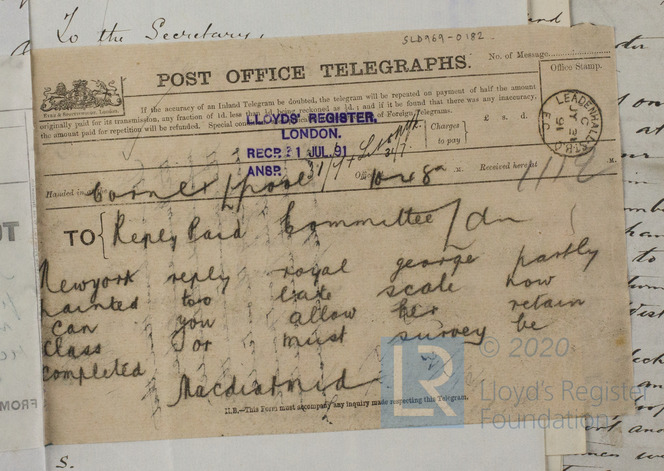 To the Secretary,
SLD969-0182
No. of Message
POST OFFICE TELEGRAPHS.
Office Stamp.
If the accuracy of an Inland Telegram be doubted, the telegram will be repeated on payment of half the amount
originally paid for its transmission, any fraction of 1d. less than ½d. being reckoned as ½d.; and if it be found that there was any inaccuracy,
the amount paid for repetition will be refunded. Special conditions of Foreign Telegrams.
LLOYDS' REGISTER,
LONDON.
RECD. 31 JUL. 91
ANSD.
Charges
to pay
£ s. d.
LEADENHALL ST
C
JY 31
91
Handed in
Received here at
Corner L'pool
TO
Reply Paid Committee / dn
Newyork reply royal george partly
painted too late scale now
can you allow her retain
class or must survey be
completed
Macdiarmid
N.B.—This Form must accompany any inquiry made respecting this Telegram.
LR
© 2020
Lloyd's Register
Foundation
FROM
s.